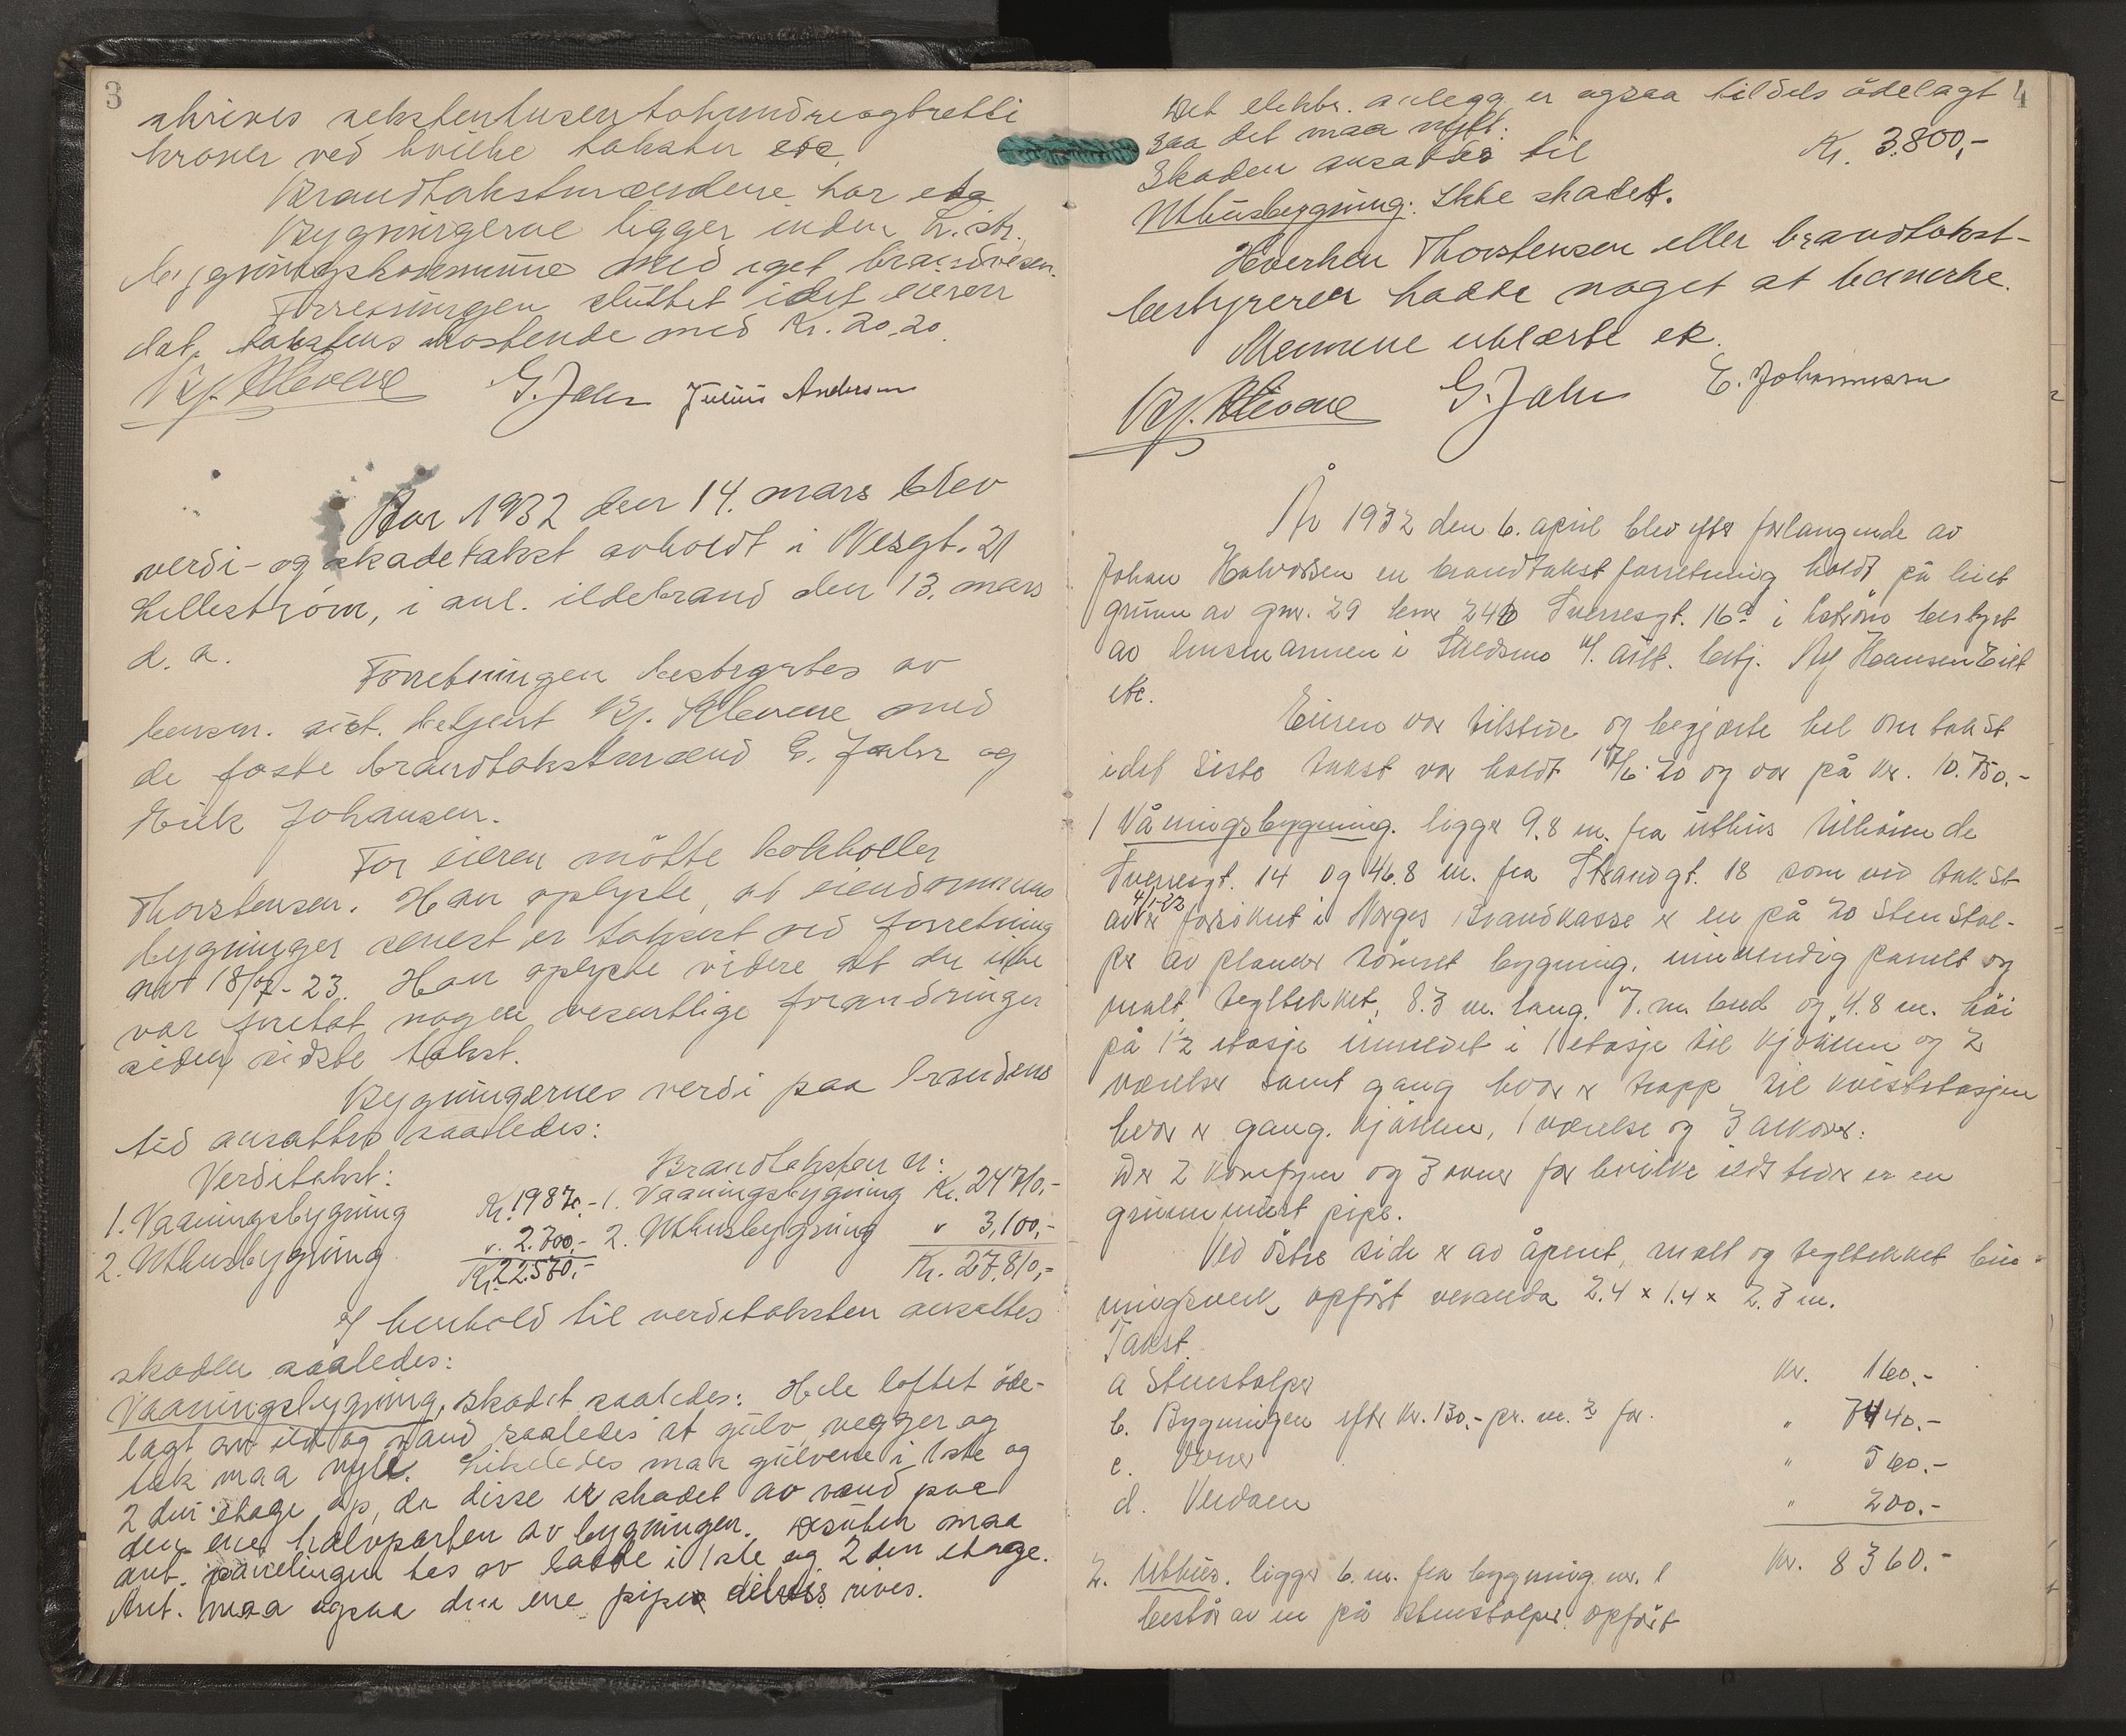 3
skrives sekstentusentohundreogtretti
kroner ved hvilke takster etc.
Brandtakstmændene har etc
Bygningerne ligger inden L.str.
bygningskommune med eget brandvesen.
Forretningen sluttet idet eieren
dat. takstens kostende med Kr. 20.20.
Kr. Klevene G. Jahr Julius Andersen
Aar 1932 den 14. mars blev
verdi- og skadetakst avholdt i Nesgt. 21
Lillestrøm, i anl. ildebrand den 13. mars
d. a.
Forretningen bestyrtes av
lensm. aist. betjent Kr. Klevene med
de faste brandtakstmænd G. Jahr og
Erik Johansen.
For eieren møtte
Thorstensen. Han oplyste, at eiendommens
bygninger senest er taksert ved forretning
avh 18/7-23. Han oplyste videre at der ikke
var foretat nogen vesentlige forandringer
siden sidste takst.
Bygningernes verdi paa brandens
tid ansattes saaledes:
Verditakst: Brandtaksten er:
1. Vaaningsbygning Kr. 19870,- 1. Vaaningsbygning Kr. 24710,-
2. Uthusbygning " 2.700,- 2. Uthusbygning " 3,100,-
Kr. 22570,- Kr. 27,810,-
I henhold til verditaksten ansattes
skaden saaledes:
Vaaningsbygning, skadet saaledes: Hele loftet øde-
lagt av ild og vand saaledes at gulv vegger og
tak maa nyt. Likeledes maa gulvene i 1ste og
2 den etage op, da disse er skadet av vand paa
den ene halvparten av bygningen. Desuten maa
ant. panelingen tas av samme i 1ste og 2 den etage.
Ant. maa ogsaa den ene pipe delvis rives.
4
Det elektr. anlegg er ogsaa tildels ødelagt
saa det maa nytt.
Skaden ansattes til Kr. 3.800,-
Uthusbygning: Ikke skadet.
Hverken Thorstensen eller brandtakst-
bestyreren hadde noget at bemerke.
Mennene utlærte ek.
Kr. Klevene G. Jahr E. Johannessen
År 1932 den 6. april blev efter forlangende av
Johan Halvorsen en brandtakst forretning holdt på hint
grunn av gnr. 29 bnr 246 Sverresgt. 16a i Lstrøm bestyrt
av lensmannen i Skedsmo v/. aist. betj. Hansen
etc.
Eieren var tilstede og begjærte hel om takst
idet siste takst var holdt 17/6-20 og var på kr. 10.750.-
1 Våningsbygning. ligger 9.8 m. fra uthus tilhørende
Sverresgt. 14 og 46.8 m. fra Strandgt. 18 som ved takst
av 4/1-22 er forsikret i Norges Brandkasse er en på 20 sten stol-
per av planker tømret bygning, innvendig panelt og
malt, tegltekket, 8.3 m. lang, 7. m. bred og 4.8 m. høi
på 1½ etasje innredet i 1 etasje til kjøkken og 2
værelser samt gang hvor er trapp til kvistetasjen
hvor er gang. kjøkken, 1 værelse og 3 alkover:
Der 2 komfyrer og 3 ovner for hvilke ildsteder er en
grunnmuret pipe.
Ved østre side er av åpent, malt og tegltekket bin-
ningsverk opført veranda 2.4 x 1.4 x 2.3 m.
Takst.
a Stenstolper kr. 160.-
b. Bygningen efter kr. 130.- pr. m. 2 for. " 7440.-
c. Ovner " 560.-
d. Verdaen " 200.-
kr. 8360.-
2. Uthus. ligger 6. m. fra bygning nr. 1
består av en på stenstolper opført